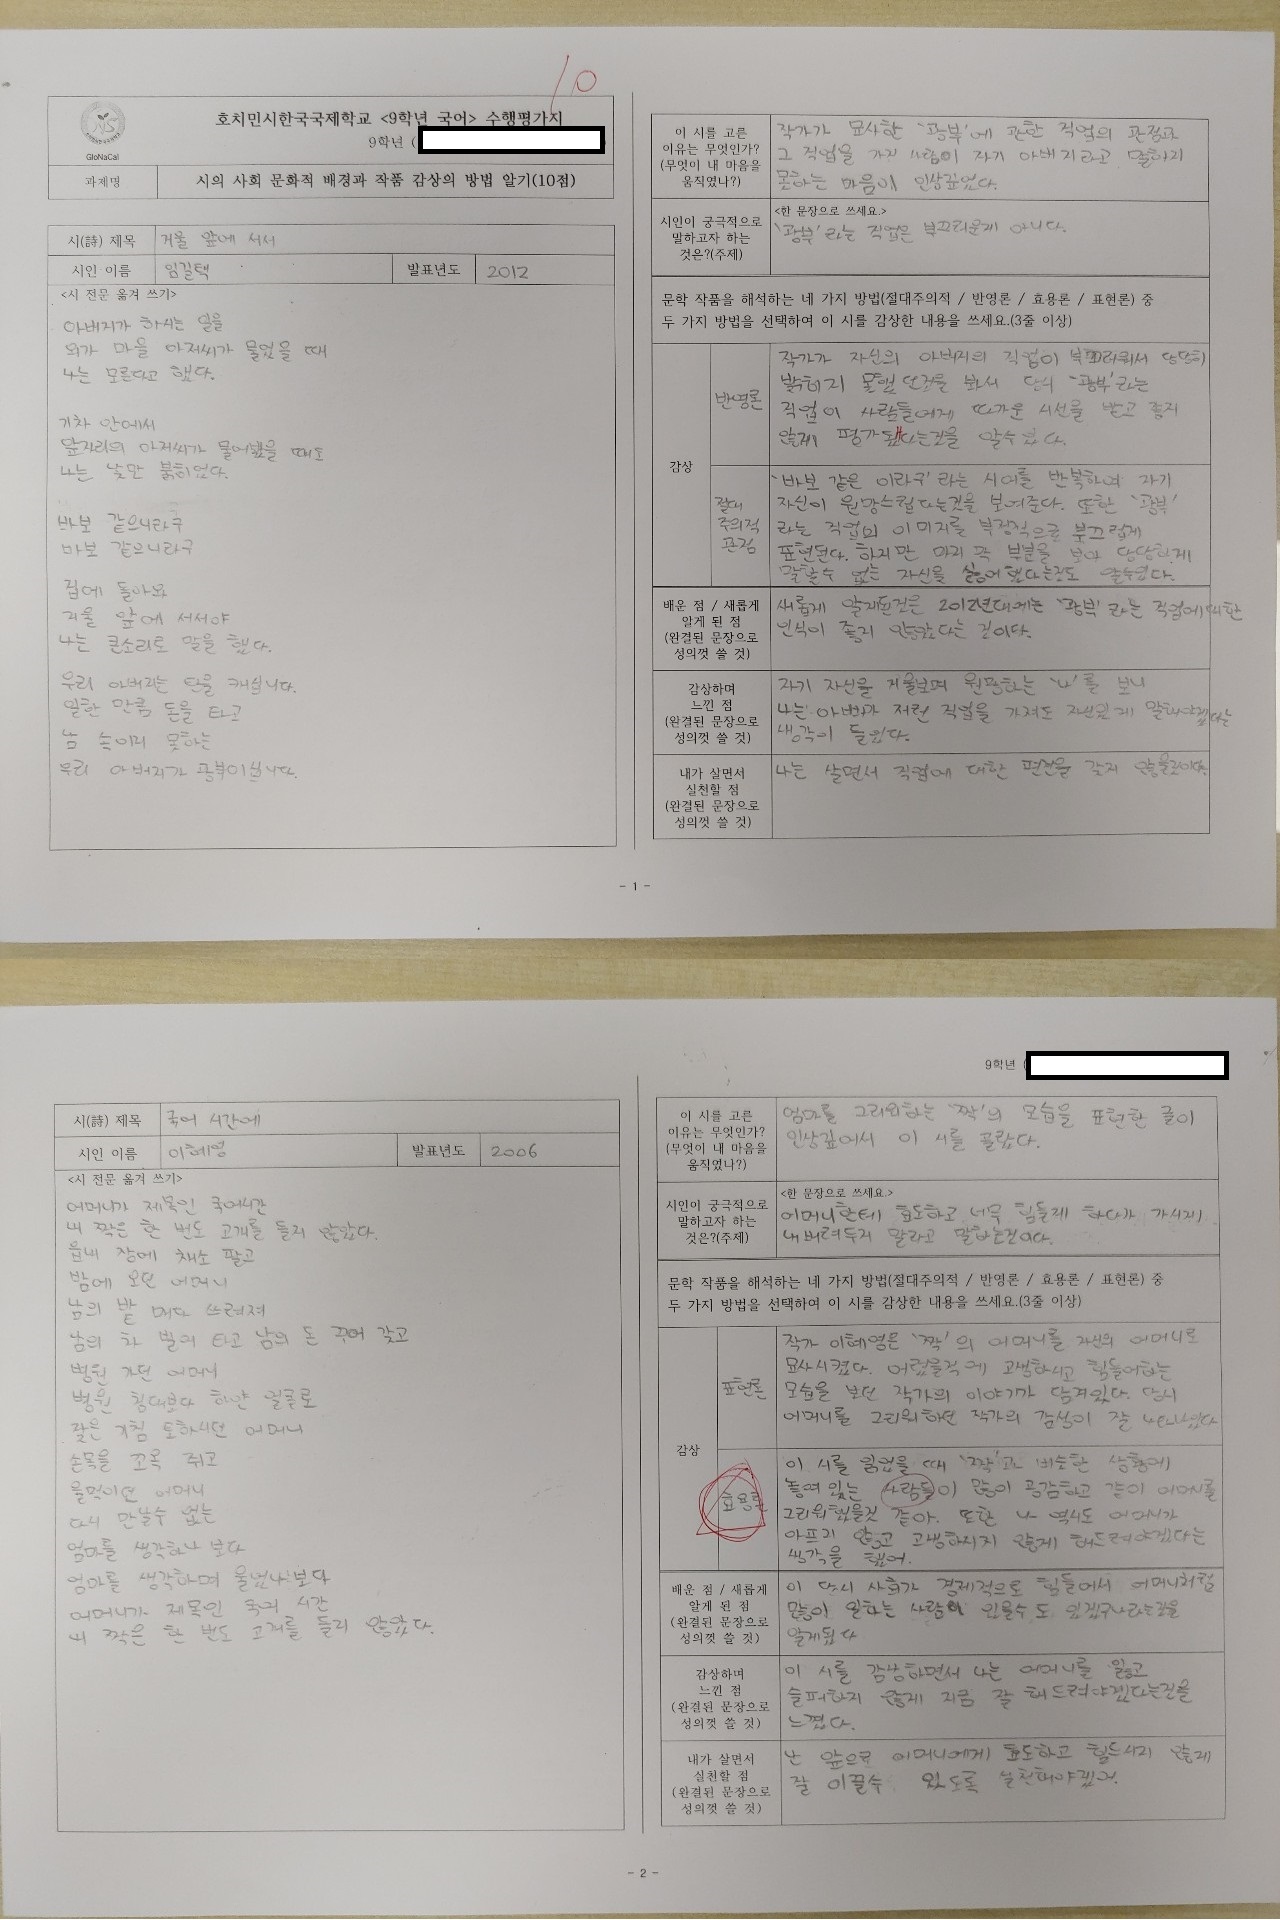 10
호치민시한국국제학교 <9학년 국어> 수행평가지
9학년 (
GloNaCal
과제명
시의 사회 문화적 배경과 작품 감상의 방법 알기(10점)
시(詩) 제목
거울 앞에 서서
시인 이름
임길택
발표년도
2012
<시 전문 옮겨 쓰기>
아버지가 하시는 일을
외가 마을 아저씨가 물었을 때
나는 모른다고 했다.
기차 안에서
앞자리의 아저씨가 물어봤을 때도
나는 낯만 붉히었다.
바보 같으니라구
바보 같으니라구
집에 돌아와
거울 앞에 서서야
나는 큰소리로 말을 했다.
우리 아버지는 탄을 캐십니다.
일한 만큼 돈을 타고
남 속이지 못하는
우리 아버지가 광부이십니다.
이 시를 고른
이유는 무엇인가?
(무엇이 내 마음을
움직였나?)
작가가 묘사한 '광부'에 관한 직업의 관점과
그 직업을 가진 사람이 자기 아버지라고 말하지
못하는 마음이 인상깊었다.
시인이 궁극적으로
말하고자 하는
것은?(주제)
<한 문장으로 쓰세요.>
'광부'라는 직업은 부끄러운게 아니다.
문학 작품을 해석하는 네 가지 방법(절대주의적 / 반영론 / 효용론 / 표현론) 중
두 가지 방법을 선택하여 이 시를 감상한 내용을 쓰세요.(3줄 이상)
감상
반영론
작가가 자신의 아버지의 직업이 부끄러워서 당당히
밝히지 못했던것을 봐서 당시 '광부'라는
직업이 사람들에게 따가운 시선을 받고 좋지
않게 평가됐다는것을 알수있다.
절대
주의적
관점
'바보 같은 이라구'라는 시어를 반복하여 자기
자신이 원망스럽다는것을 보여준다. 또한 '광부'
라는 직업의 이미지를 부정적으로 부끄럽게
표현된다. 하지만 마지막 부분을 보아 당당하게
말할수 없는 자신을 싫어했다는것도 알수있다.
배운 점 / 새롭게
알게 된 점
(완결된 문장으로
성의껏 쓸 것)
새롭게 알게된것은 2012년대에는 '광부'라는 직업에 대한
인식이 좋지 않았다는 것이다.
감상하며
느낀 점
(완결된 문장으로
성의껏 쓸 것)
자기 자신을 거울보며 원망하는 '나'를 보니
나는 아버지가 저런 직업을 가져도 자신있게 말해야겠다는
생각이 들었다.
내가 살면서
실천할 점
(완결된 문장으로
성의껏 쓸 것)
나는 살면서 직업에 대한 편견을 갖지 않을것이다.
- 1 -
9학년 (
시(詩) 제목
국어 시간에
시인 이름
이혜영
발표년도
2006
<시 전문 옮겨 쓰기>
어머니가 제목인 국어시간
내 짝은 한 번도 고개를 들지 않았다.
읍내 장에 채소 팔고
밤에 오던 어머니
남의 밭 매다 쓰러져
남의 차 빌려 타고 남의 돈 꾸어 갖고
병원 가던 어머니
병원 침대보다 하얀 얼굴로
잦은 기침 토하시던 어머니
손목을 꼬옥 쥐고
울먹이던 어머니
다시 만날수 없는
엄마를 생각하나 보다
엄마를 생각하며 울었나보다
어머니가 제목인 국어 시간
내 짝은 한 번도 고개를 들지 않았다.
이 시를 고른
이유는 무엇인가?
(무엇이 내 마음을
움직였나?)
엄마를 그리워하는 '짝'의 모습을 표현한 글이
인상깊어서 이 시를 골랐다.
시인이 궁극적으로
말하고자 하는
것은?(주제)
<한 문장으로 쓰세요.>
어머니한테 효도하고 너무 힘들게 하다가 가시게
내버려두지 말라고 말하는것이다.
문학 작품을 해석하는 네 가지 방법(절대주의적 / 반영론 / 효용론 / 표현론) 중
두 가지 방법을 선택하여 이 시를 감상한 내용을 쓰세요.(3줄 이상)
감상
표현론
작가 이혜영은 '짝'의 어머니를 자신의 어머니로
묘사시켰다. 어렸을적에 고생하시고 힘들어하는
모습을 보던 작가의 이야기가 담겨있다. 당시
어머니를 그리워하던 작가의 감정이 잘 나타나있다
효용론
이 시를 읽었을 때 '짝'과 비슷한 상황에
놓여 있는 사람들이 많이 공감하고 같이 어머니를
그리워했을것 같아. 또한 나 역시도 어머니가
아프지 않고 고생하시지 않게 해드려야겠다는
생각을 했어.
배운 점 / 새롭게
알게 된 점
(완결된 문장으로
성의껏 쓸 것)
이 당시 사회가 경제적으로 힘들어서 어머니처럼
많이 일하는 사람이 있을수 도 있겠구나라는것을
알게됐다
감상하며
느낀 점
(완결된 문장으로
성의껏 쓸 것)
이 시를 감상하면서 나는 어머니를 잃고
슬퍼하지 않게 지금 잘 해드려야겠다는것을
느꼈다.
내가 살면서
실천할 점
(완결된 문장으로
성의껏 쓸 것)
난 앞으로 어머니에게 효도하고 힘드시지 않게
잘 이끌수 있도록 실천해야겠어.
- 2 -